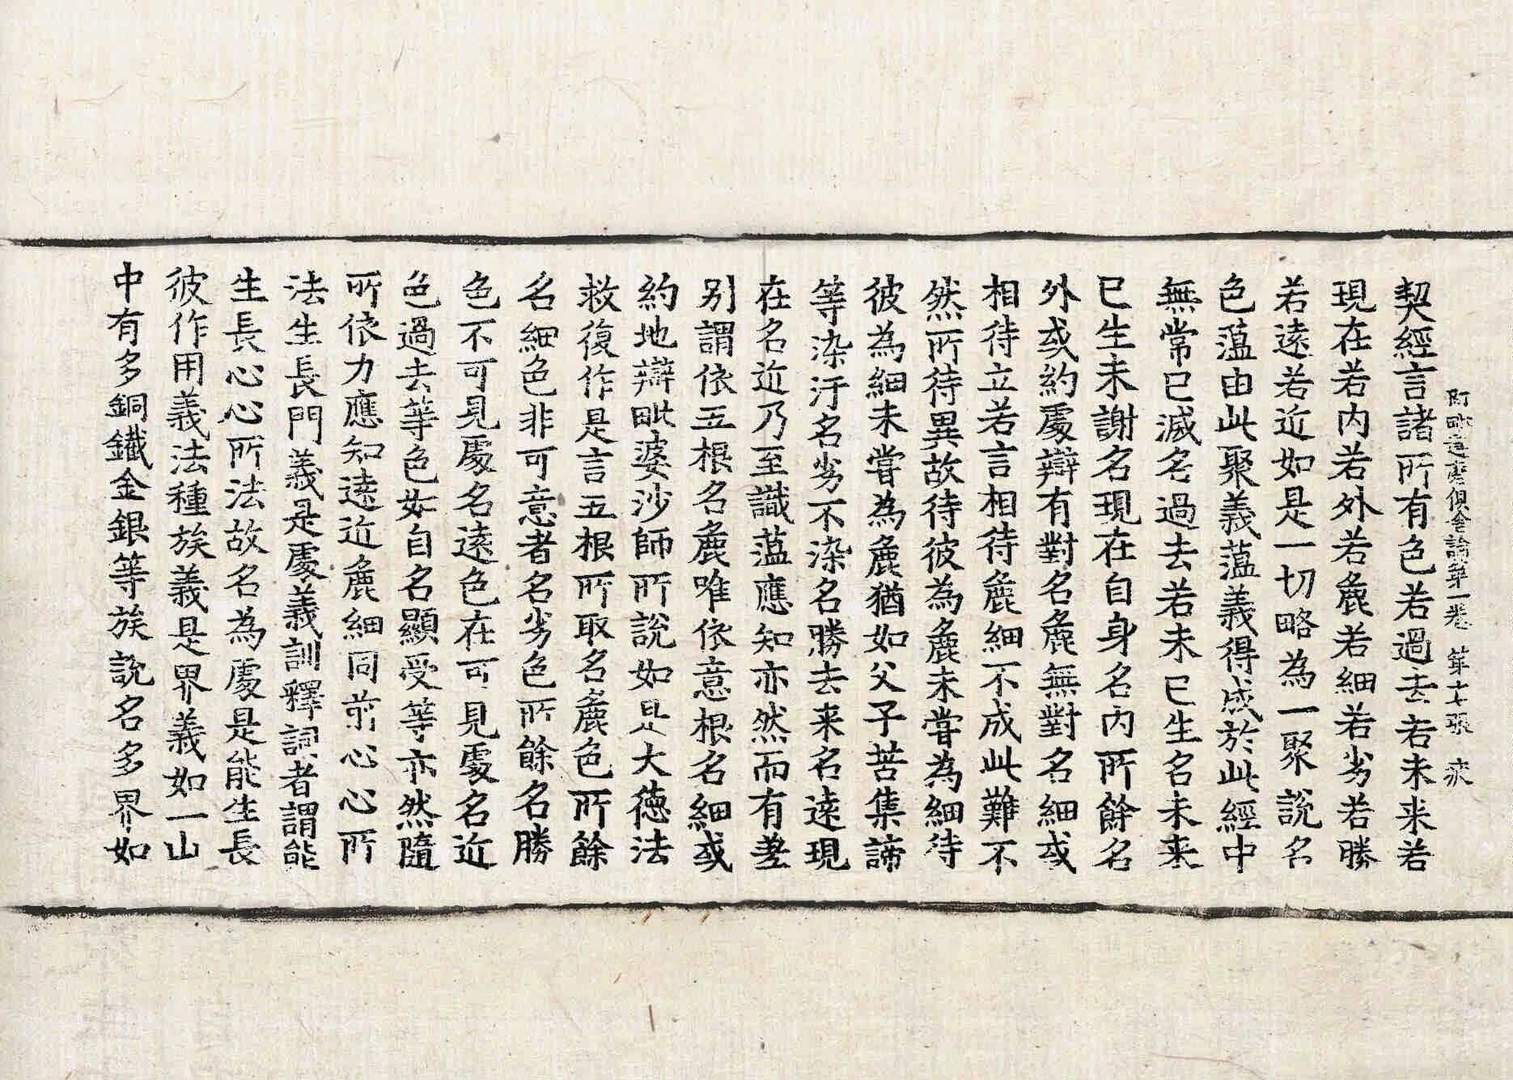 阿毗達磨俱舍論第一卷 第十七張 疲
契經言諸所有色若過去若未來若
現在若內若外若麁若細若劣若勝
若遠若近如是一切略為一聚說名
色蘊由此聚義蘊義得成於此經中
無常已滅名過去若未已生名未來
已生未謝名現在自身名內所餘名
外或約處辯有對名麁無對名細或
相待立若言相待麁細不成此難不
然所待異故待彼為麁未嘗為細待
彼為細未嘗為麁猶如父子苦集諦
等染汙名劣不染名勝去来名遠現
在名近乃至識蘊應知亦然而有差
別謂依五根名麁唯依意根名細或
約地辯毗婆沙師所說如是大德法
救復作是言五根所取名麁色所餘
名細色非可意者名劣色所餘名勝
色不可見處名遠色在可見處名近
色過去等色如自名顯受等亦然隨
所依力應知遠近麁細同前心心所
法生長門義是處義訓釋詞者謂能
生長心心所法故名為處是能生長
彼作用義法種族義是界義如一山
中有多銅鐵金銀等族說名多界如